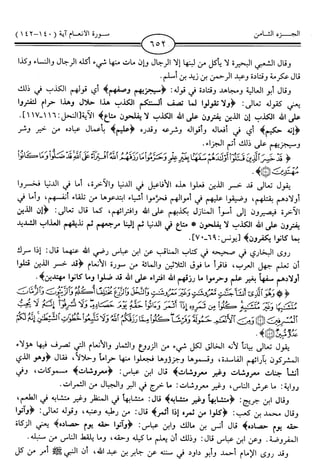 الجـــزء الثـــامن
سـورة الانعــام آية (١٤٠-١٤٢)
٦٥٢
وقال الشعبي البحيرة لا يأكل من لبنها إلا الرجال وإن مات منها شيء أكله الرجال والنساء وكذا
قال عكرمة وقتادة وعبد الرحمن بن زيد بن أسلم.
وقال أبو العالية ومجاهد وقتادة في قوله: ﴿سيجزيهم وصفهم﴾ أي قولهم الكذب في ذلك
يعني كقوله تعالى: ﴿ولا تقولوا لما تصف ألسنتكم الكذب هذا حلال وهذا حرام لتفتروا
على الله الكذب إن الذين يفترون على الله الكذب لا يفلحون متاع﴾ الآية[النحل:١١٦-١١٧].
﴿إنه حكيم﴾ أي في أفعاله وأقواله وشرعه وقدره ﴿عليم﴾ بأعمال عباده من خير وشر
وسيجزيهم على ذلك أتم الجزاء.
﴿قد خسر الذين قتلوا أولادهم سفها بغير علم وحرموا ما رزقهم الله افتراء على الله قد ضلوا وما كانوا
مهتدين﴾.
يقول تعالى قد خسر الذين فعلوا هذه الأفاعيل في الدنيا والآخرة، أما في الدنيا فخسروا
أولادهم بقتلهم، وضيقوا عليهم في أموالهم فحرموا أشياء ابتدعوها من تلقاء أنفسهم، وأما في
الآخرة فيصيرون إلى أسوأ المنازل بكذبهم على الله وافترائهم، كما قال تعالى: ﴿إن الذين
يفترون على الله الكذب لا يفلحون * متاع في الدنيا ثم إلينا مرجعهم ثم نذيقهم العذاب الشديد
بما كانوا يكفرون﴾ [يونس:٦٩-٧٠].
روى البخاري في صحيحه في كتاب المناقب عن ابن عباس رضي الله عنهما قال: إذا سرك
أن تعلم جهل العرب، فاقرأ ما فوق الثلاثين والمائة من سورة الأنعام ﴿قد خسر الذين قتلوا
أولادهم سفهاً بغير علم وحرموا ما رزقهم الله افتراء على الله قد ضلوا وما كانوا مهتدين﴾.
﴿وهو الذي أنشأ جنات معروشات وغير معروشات والنخل والزرع مختلفا أكله والزيتون والرمان
متشابها وغير متشابه كلوا من ثمره إذا أثمر وآتوا حقه يوم حصاده ولا تسرفوا إنه لا يحب
المسرفين ومن الأنعام حمولة وفرشا كلوا مما رزقكم الله ولا تتبعوا خطوات الشيطان إنه لكم عدو
مبين﴾.
يقول تعالى بياناً لأنه الخالق لكل شيء من الزروع والثمار والأنعام التي تصرف فيها هؤلاء
المشركون بآرائهم الفاسدة، وقسموها وجزؤوها فجعلوا منها حراماً وحلالاً، فقال ﴿وهو الذي
أنشأ جنات معروشات وغير معروشات﴾ قال ابن عباس: ﴿معروشات﴾ مسموكات، وفي
رواية: ما عرش الناس، وغير معروشات: ما خرج في البر والجبال من الثمرات.
وقال ابن جريج: ﴿متشابهاً وغير متشابه﴾ قال: متشابهاً في المنظر وغير متشابه في الطعم،
وقال محمد بن كعب: ﴿كلوا من ثمره إذا أثمر﴾ قال: من رطبه وعنبه، وقوله تعالى: ﴿وآتوا
حقه يوم حصاده﴾ قال أنس بن مالك وابن عباس: ﴿وآتوا حقه يوم حصاده﴾ يعني الزكاة
المفروضة. وعن ابن عباس قال: وذلك أن يعلم ما كيله وحقه، وما يلقط الناس من سنبله.
وقد روى الإمام أحمد وأبو داود في سننه عن جابر بن عبد الله، أن النبي ﷺ أمر من كل